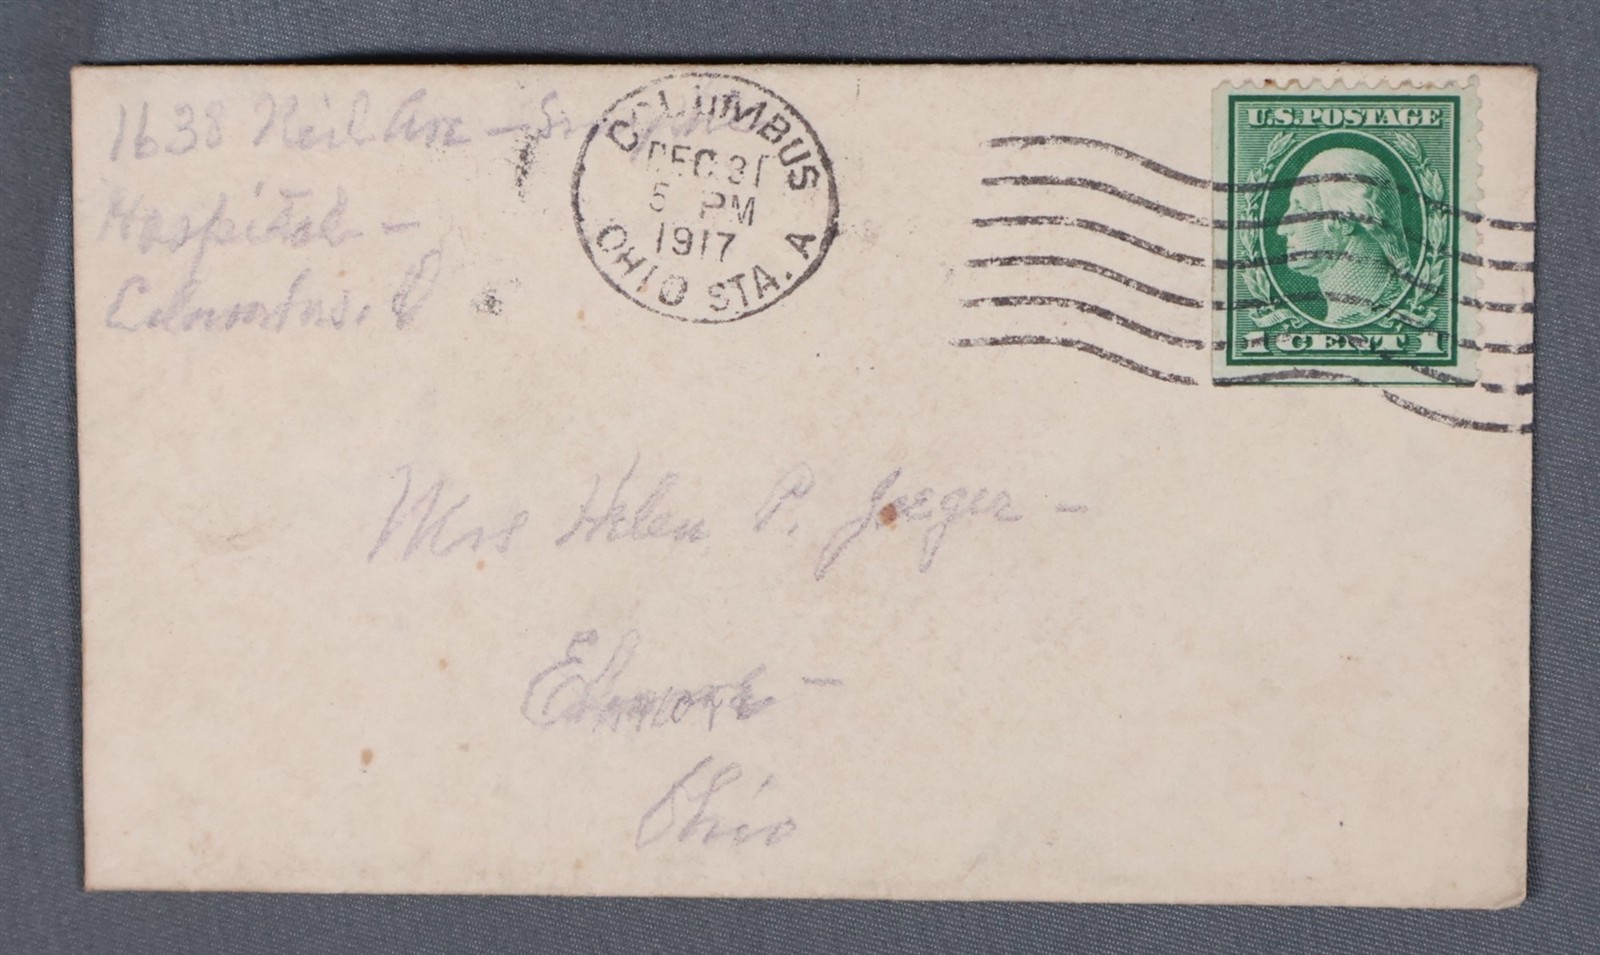 1638 Neil Ave -
Hospital -
Columbus. O
COLUMBUS
DEC 31
5 PM
1917
OHIO STA. A
U.S. POSTAGE
1 CENT 1
Mrs Helen P. Jaeger -
Elmore -
Ohio